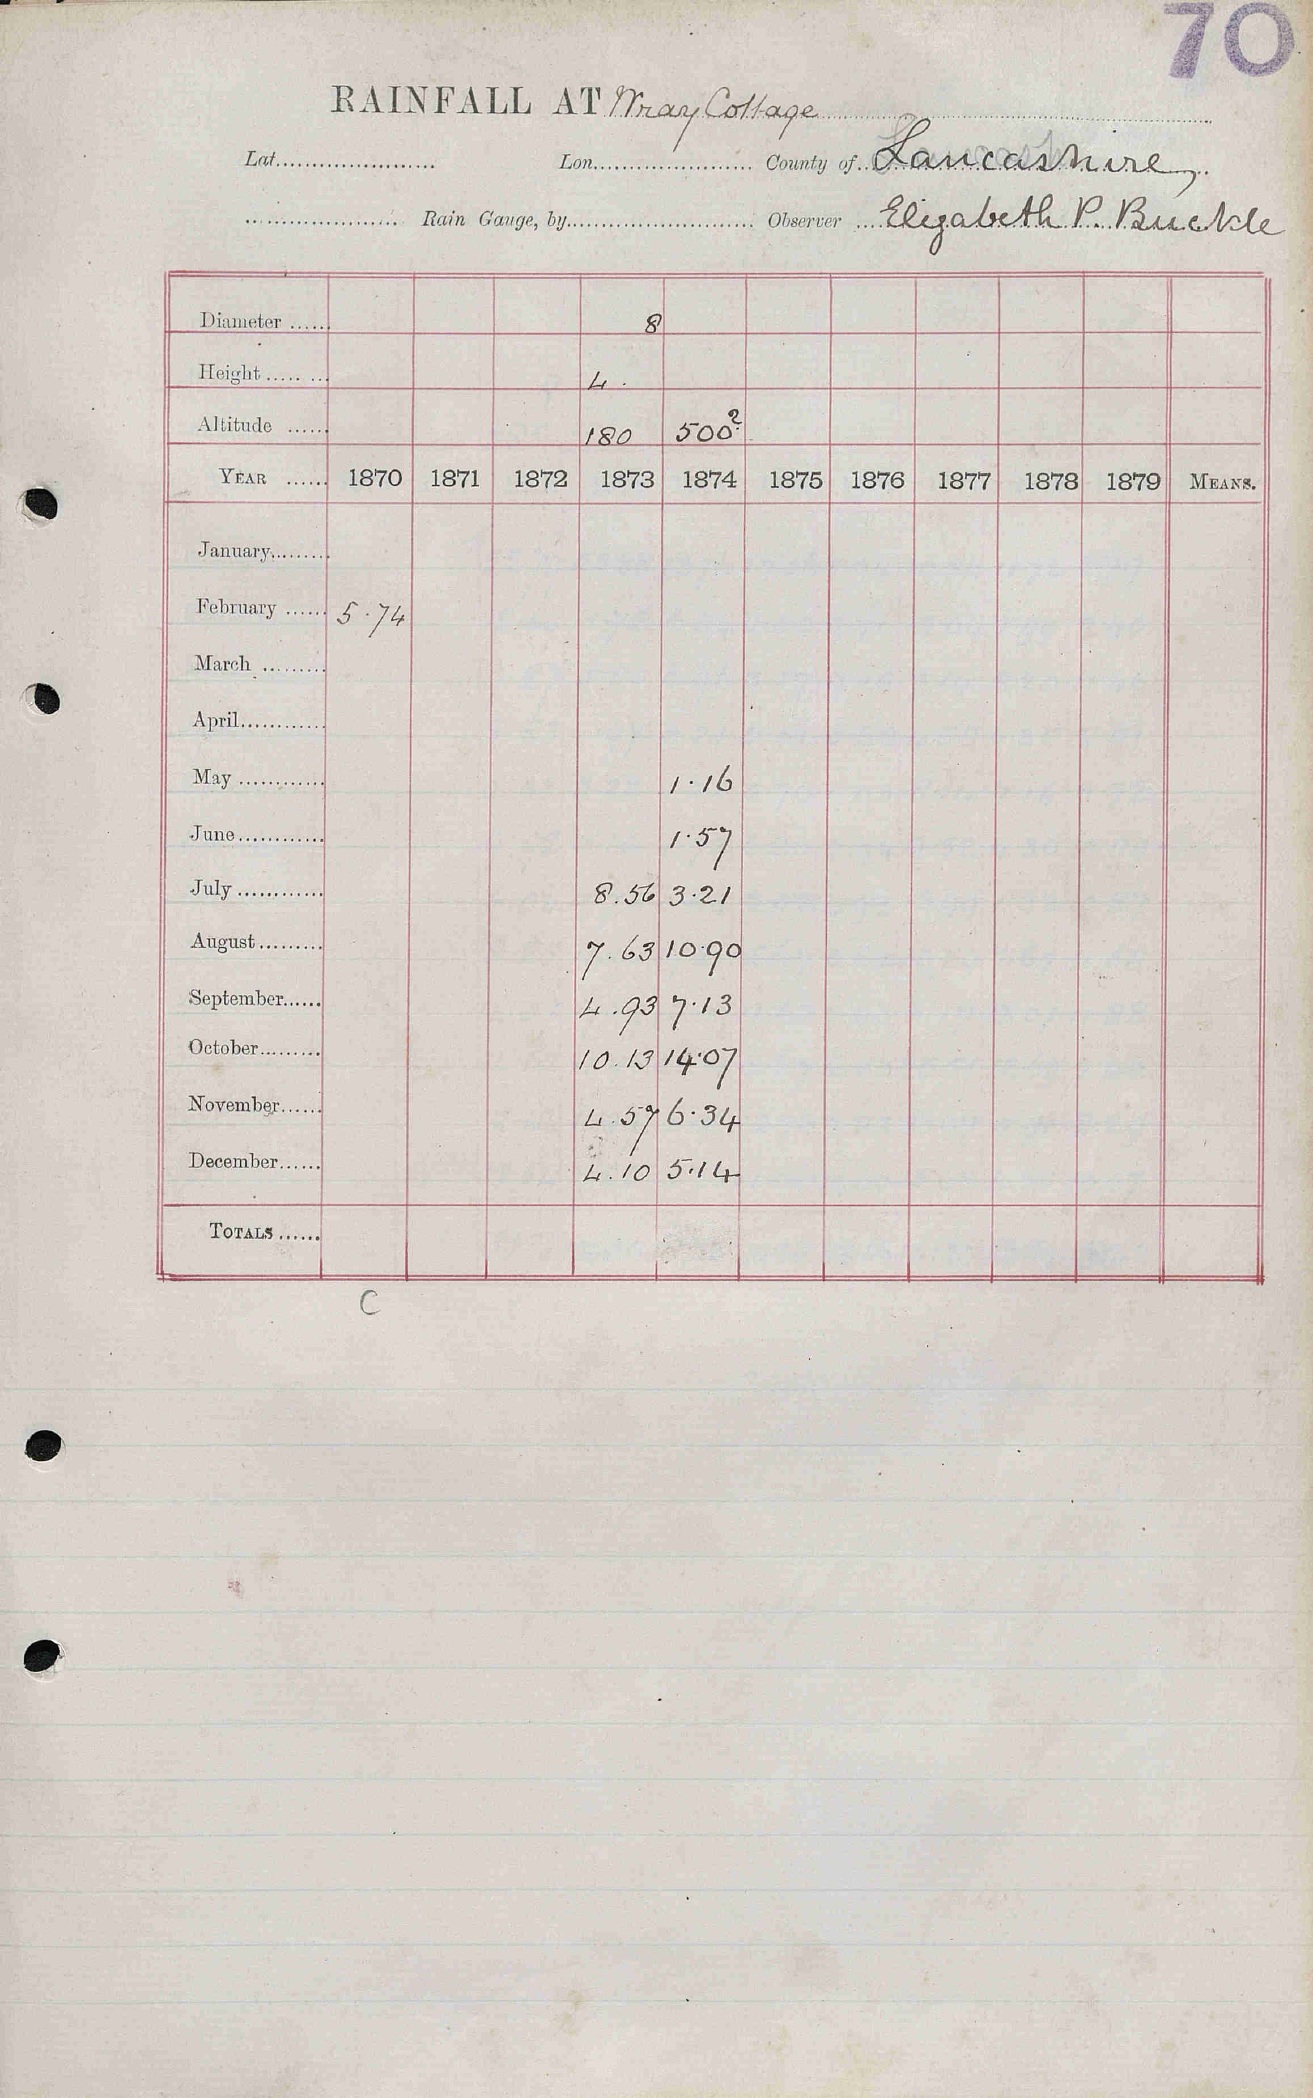 70
RAINFALL AT Wray Cottage
Lat. Lon. County of Lancashire,
Rain Gauge, by Observer Elizabeth P. Buckle
Diameter 8
Height 4.
Altitude 180 500?
YEAR 1870 1871 1872 1873 1874 1875 1876 1877 1878 1879 MEANS.
January
February 5.74
March
April
May 1.16
June 1.57
July 8.56 3.21
August 7.63 10.90
September 4.93 7.13
October 10.13 14.07
November 4.57 6.34
December 4.10 5.14
TOTALS
C